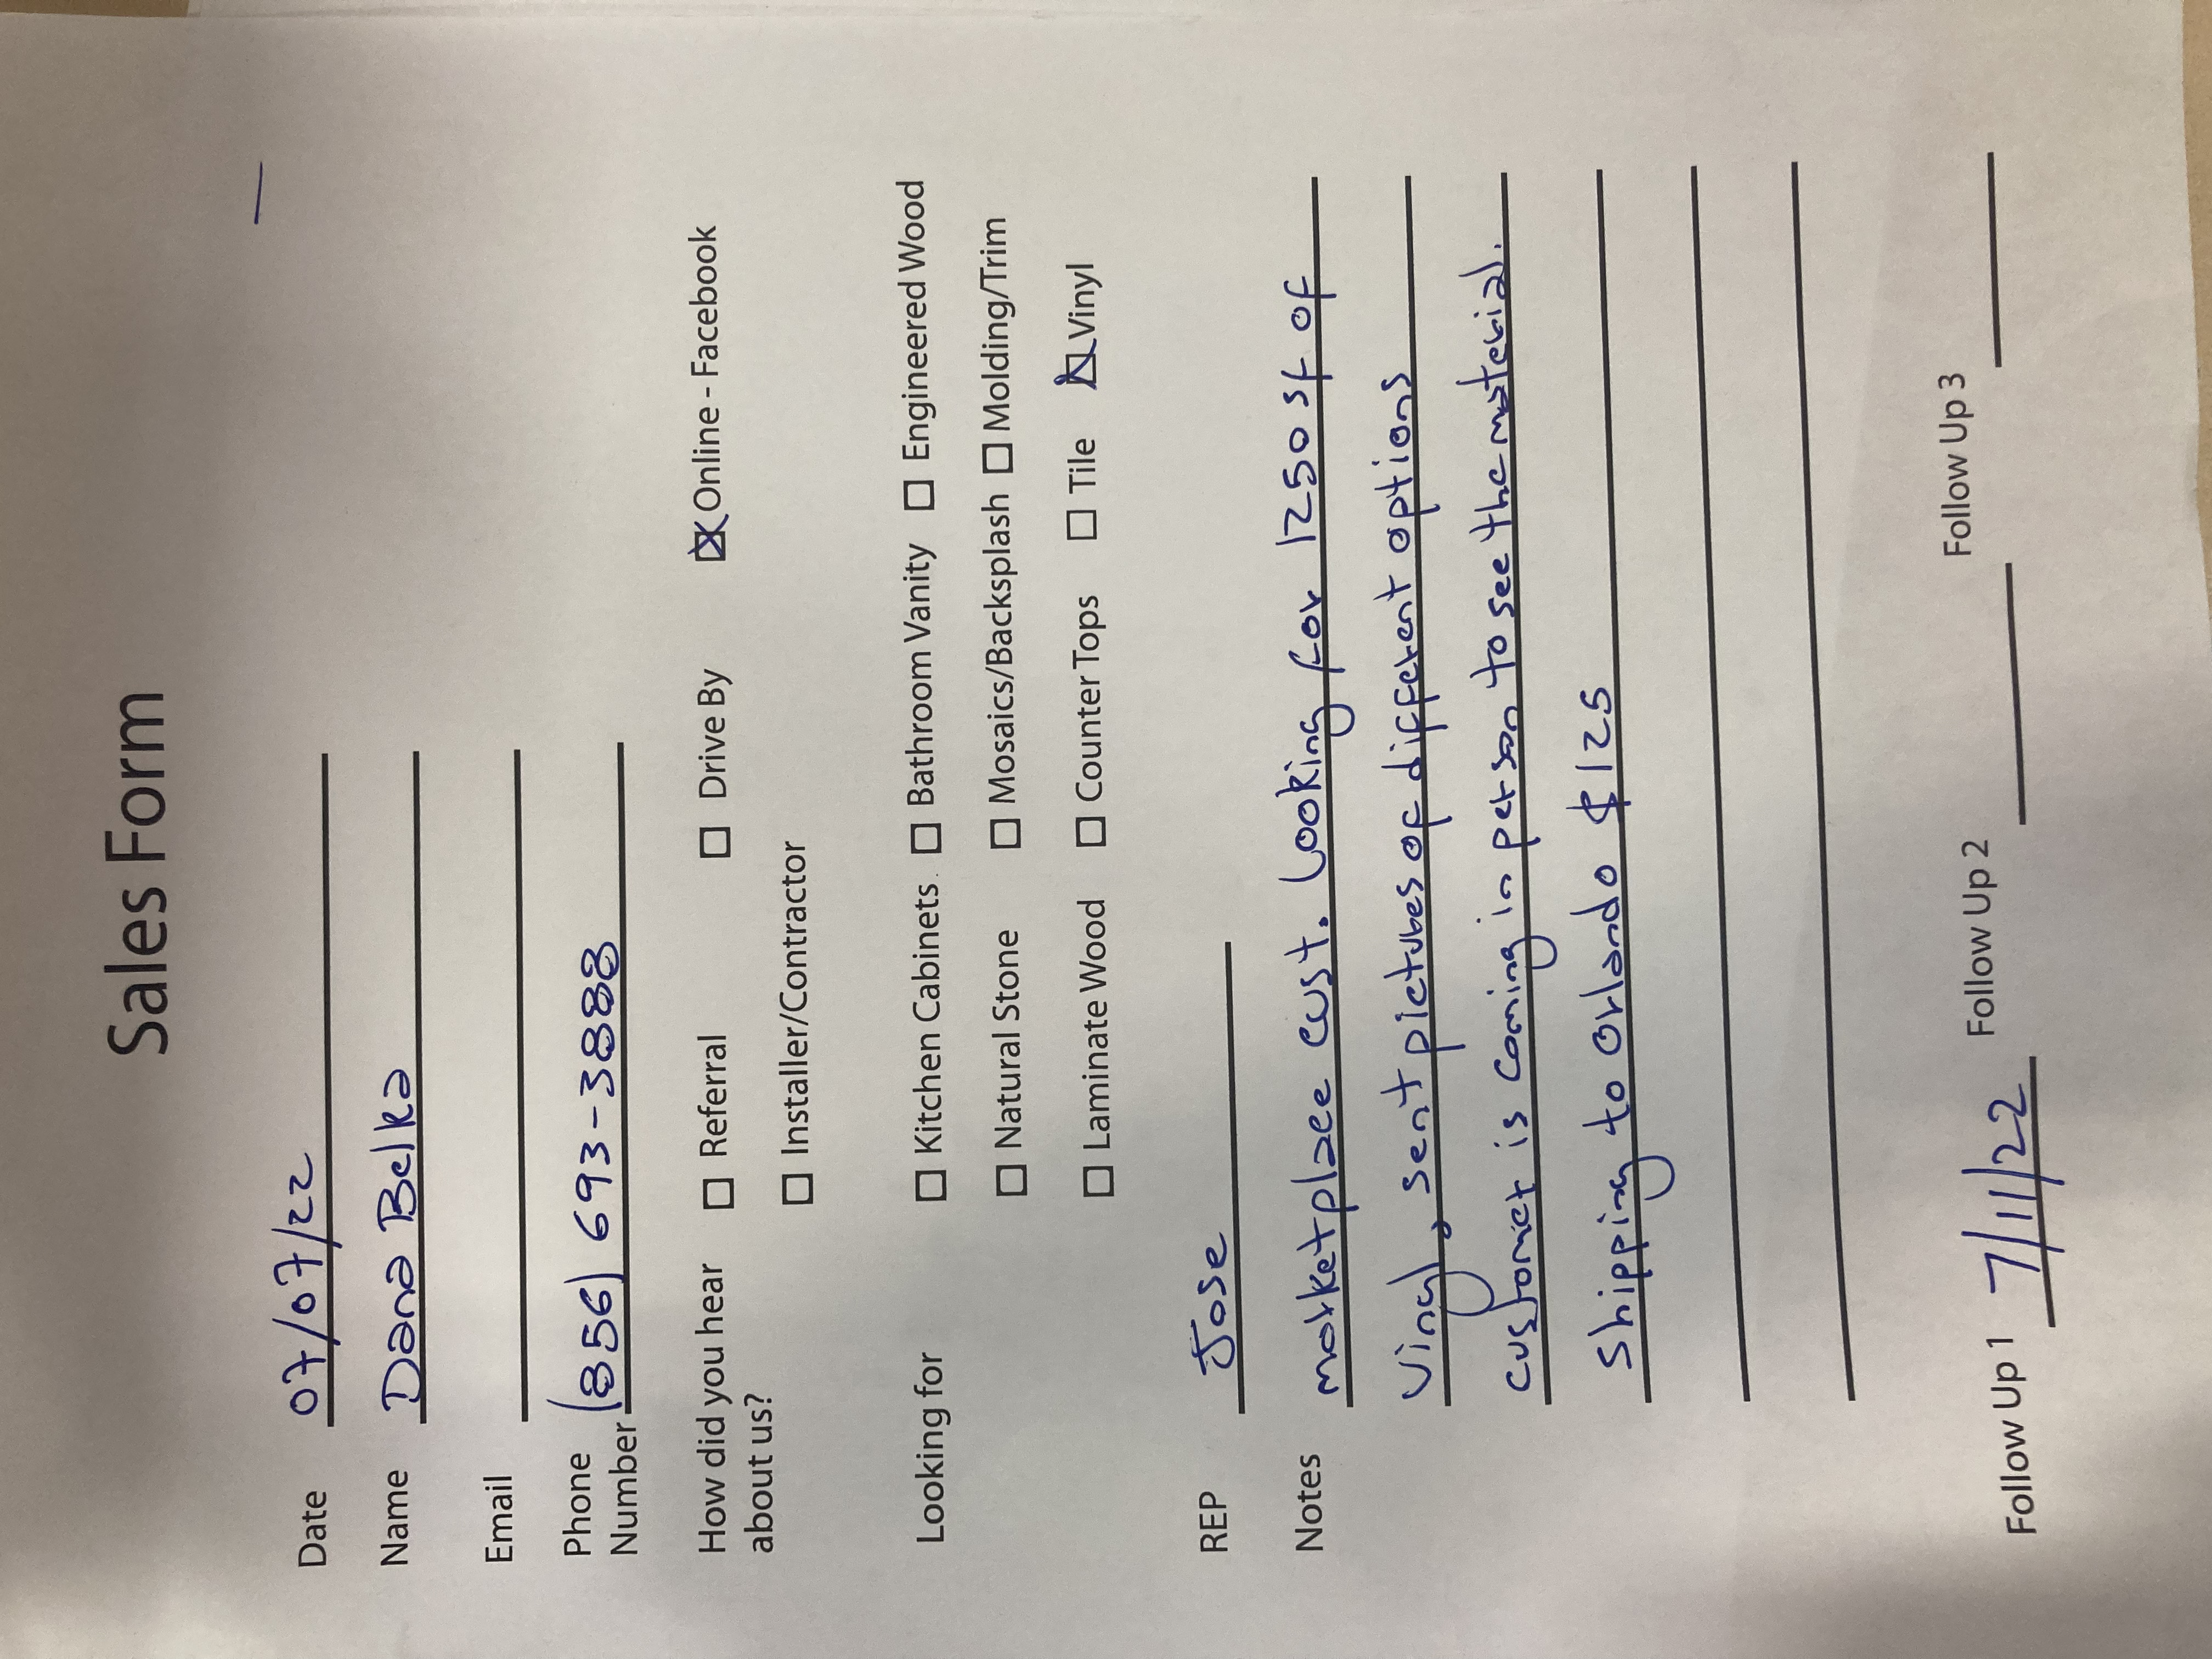 Sales Form
Date 07/07/22
Name Dana Belka
Email
Phone
Number (856) 693-3888
How did you hear ☐ Referral ☐ Drive By ☒ Online - Facebook
about us? ☐ Installer/Contractor
Looking for ☐ Kitchen Cabinets ☐ Bathroom Vanity ☐ Engineered Wood
☐ Natural Stone ☐ Mosaics/Backsplash ☐ Molding/Trim
☐ Laminate Wood ☐ Counter Tops ☐ Tile ☒ Vinyl
REP Jose
Notes marketplace cust. Looking for 1250 sf of
Vinyl, sent pictures of different options
customer is coming in person to see the material.
Shipping to Orlando $125
Follow Up 1 7/11/22 Follow Up 2 Follow Up 3